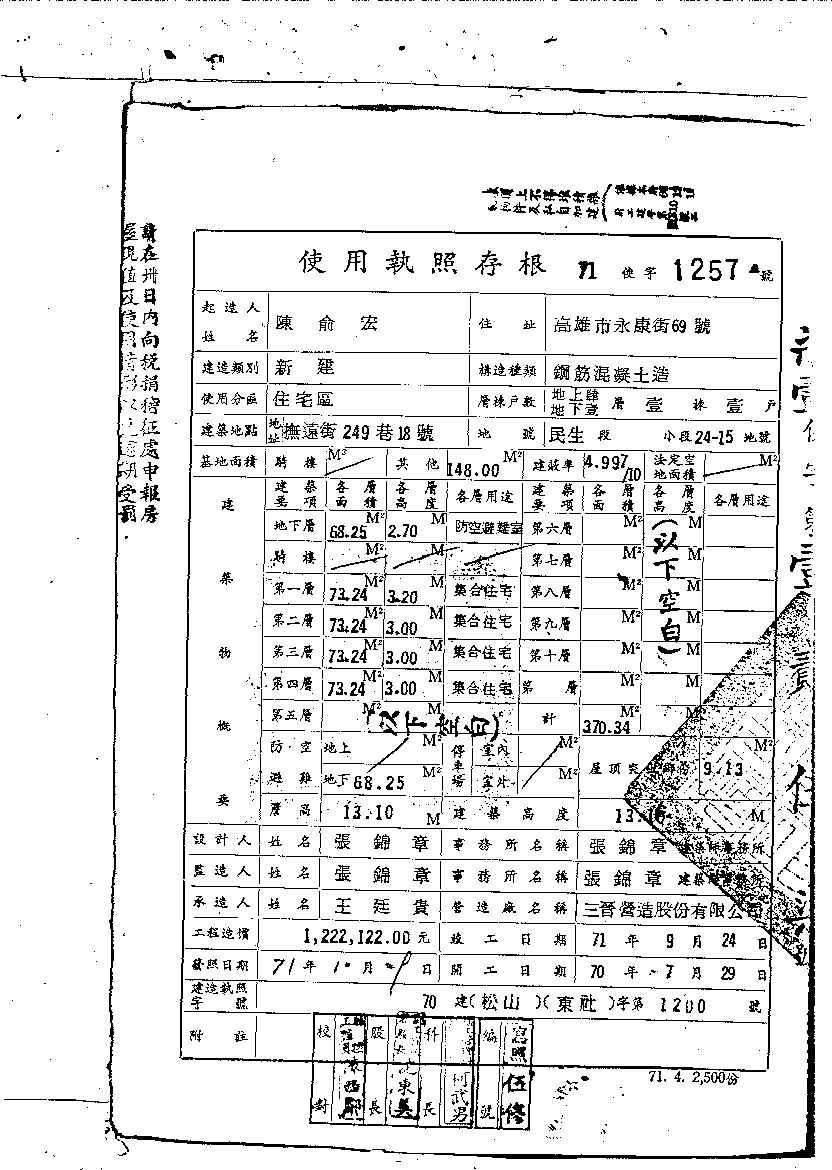 使用執照存根 71 使字 1257 號
起造人姓名 陳俞宏 住址 高雄市永康街69號
建造類別 新建 構造種類 鋼筋混凝土造
使用分區 住宅區 層棟戶數 地上肆地下壹層 壹棟 壹戶
建築地點 地址 撫遠街249巷18號 地號 民生段 小段24-15地號
基地面積 騎樓 M² 其他 148.00 M² 建蔽率 4.997/10 法定空地面積 M²
建築物概要
建築要項 各層面積 各層高度 各層用途 建築要項 各層面積 各層高度 各層用途
地下層 68.25 M² 2.70 M 防空避難室 第六層 M² M
騎樓 M² M 第七層 M² M
第一層 73.24 M² 3.20 M 集合住宅 第八層 M² M
第二層 73.24 M² 3.00 M 集合住宅 第九層 M² M
第三層 73.24 M² 3.00 M 集合住宅 第十層 M² M
第四層 73.24 M² 3.00 M 集合住宅 第 層 M² M
(以下空白)
第五層 M² M 計 370.34 M²
(以下空白)
防空避難 地上 M² 停車場 室內 M² 屋頂突 9.13 M²
地下 68.25 M² 室外 M²
簷高 13.10 M 建築高度 13.10 M
設計人 姓名 張錦章 事務所名稱 張錦章建築師事務所
監造人 姓名 張錦章 事務所名稱 張錦章建築師事務所
承造人 姓名 王廷貴 營造廠名稱 三晉營造股份有限公司
工程造價 1,222,122.00元 竣工日期 71年9月24日
發照日期 71年10月 日 開工日期 70年7月29日
建造執照字號 70建(松山)(東社)字第1200號
附註
校對 股長 科長 柯武男 編號 寫照 伍修
71.4.2,500份
請在卅日內向稅捐稽征處申報房
屋現值及使用情形以免逾期受罰